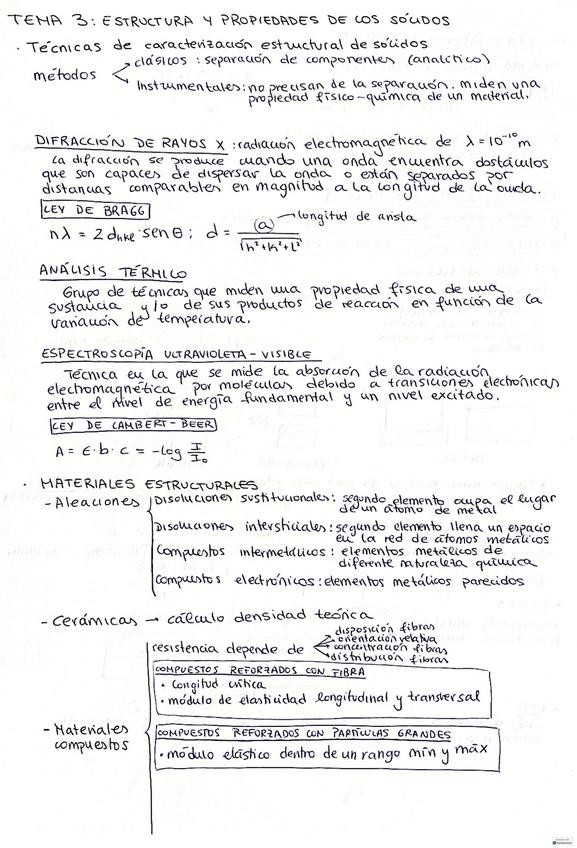 TEMA 3: ESTRUCTURA Y PROPIEDADES DE LOS SÓLIDOS
· Técnicas de caracterización estructural de sólidos
métodos
clásicos: separación de componentes (analítico)
Instrumentales: no precisan de la separación. miden una
propiedad físico-química de un material.
DIFRACCIÓN DE RAYOS X: radiación electromagnética de λ=10⁻¹⁰m
La difracción se produce cuando una onda encuentra obstáculos
que son capaces de dispersar la onda o están separados por
distancias comparables en magnitud a la longitud de la onda.
LEY DE BRAGG
nλ = 2 dhkl · sen θ ; d = a / √h²+k²+l²
longitud de arista
ANÁLISIS TÉRMICO
Grupo de técnicas que miden una propiedad física de una
sustancia y/o de sus productos de reacción en función de la
variación de temperatura.
ESPECTROSCOPÍA ULTRAVIOLETA-VISIBLE
Técnica en la que se mide la absorción de la radiación
electromagnética por moléculas debido a transiciones electrónicas
entre el nivel de energía fundamental y un nivel excitado.
LEY DE LAMBERT-BEER
A = ε·b·c = -log I/I₀
· MATERIALES ESTRUCTURALES
- Aleaciones
Disoluciones sustitucionales: segundo elemento ocupa el lugar
de un átomo de metal
Disoluciones intersticiales: segundo elemento llena un espacio
en la red de átomos metálicos
Compuestos intermetálicos: elementos metálicos de
diferente naturaleza química
Compuestos electrónicos: elementos metálicos parecidos
- Cerámicas → cálculo densidad teórica
- Materiales
compuestos
resistencia depende de
disposición fibras
orientación relativa
concentración fibras
distribución fibras
COMPUESTOS REFORZADOS CON FIBRA
· Longitud crítica
· módulo de elasticidad longitudinal y transversal
COMPUESTOS REFORZADOS CON PARTÍCULAS GRANDES
· módulo elástico dentro de un rango mín y máx